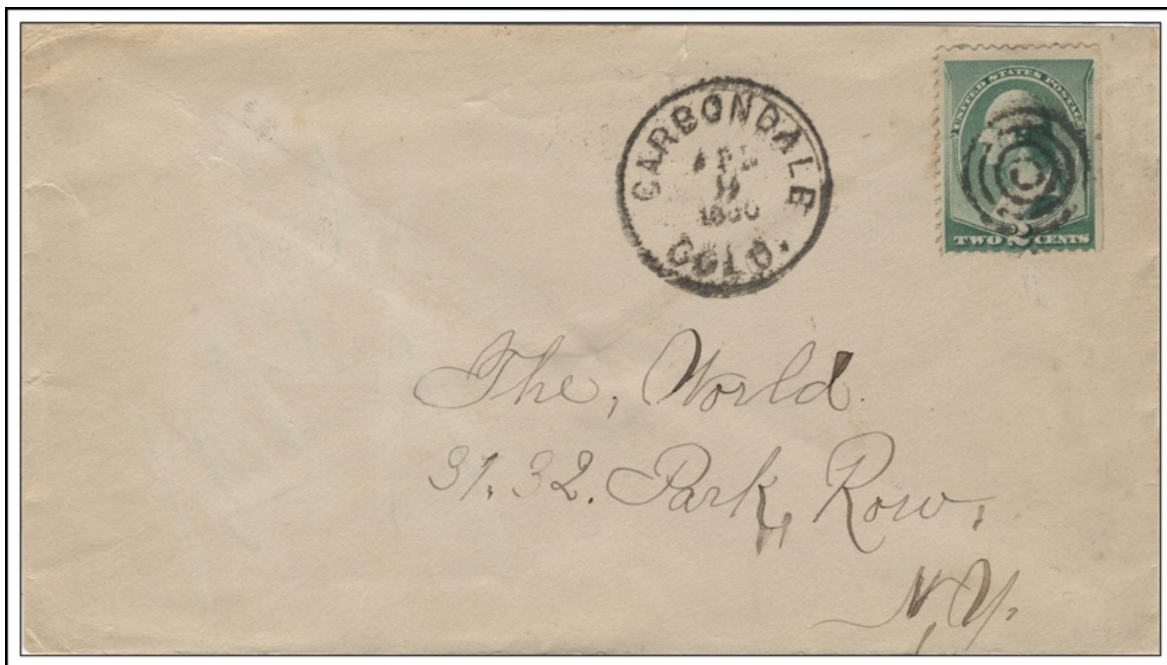 CARBONDALE
COLO.
UNITED STATES POSTAGE
TWO 2 CENTS
The, World.
31. 32. Park, Row,
N, Y.